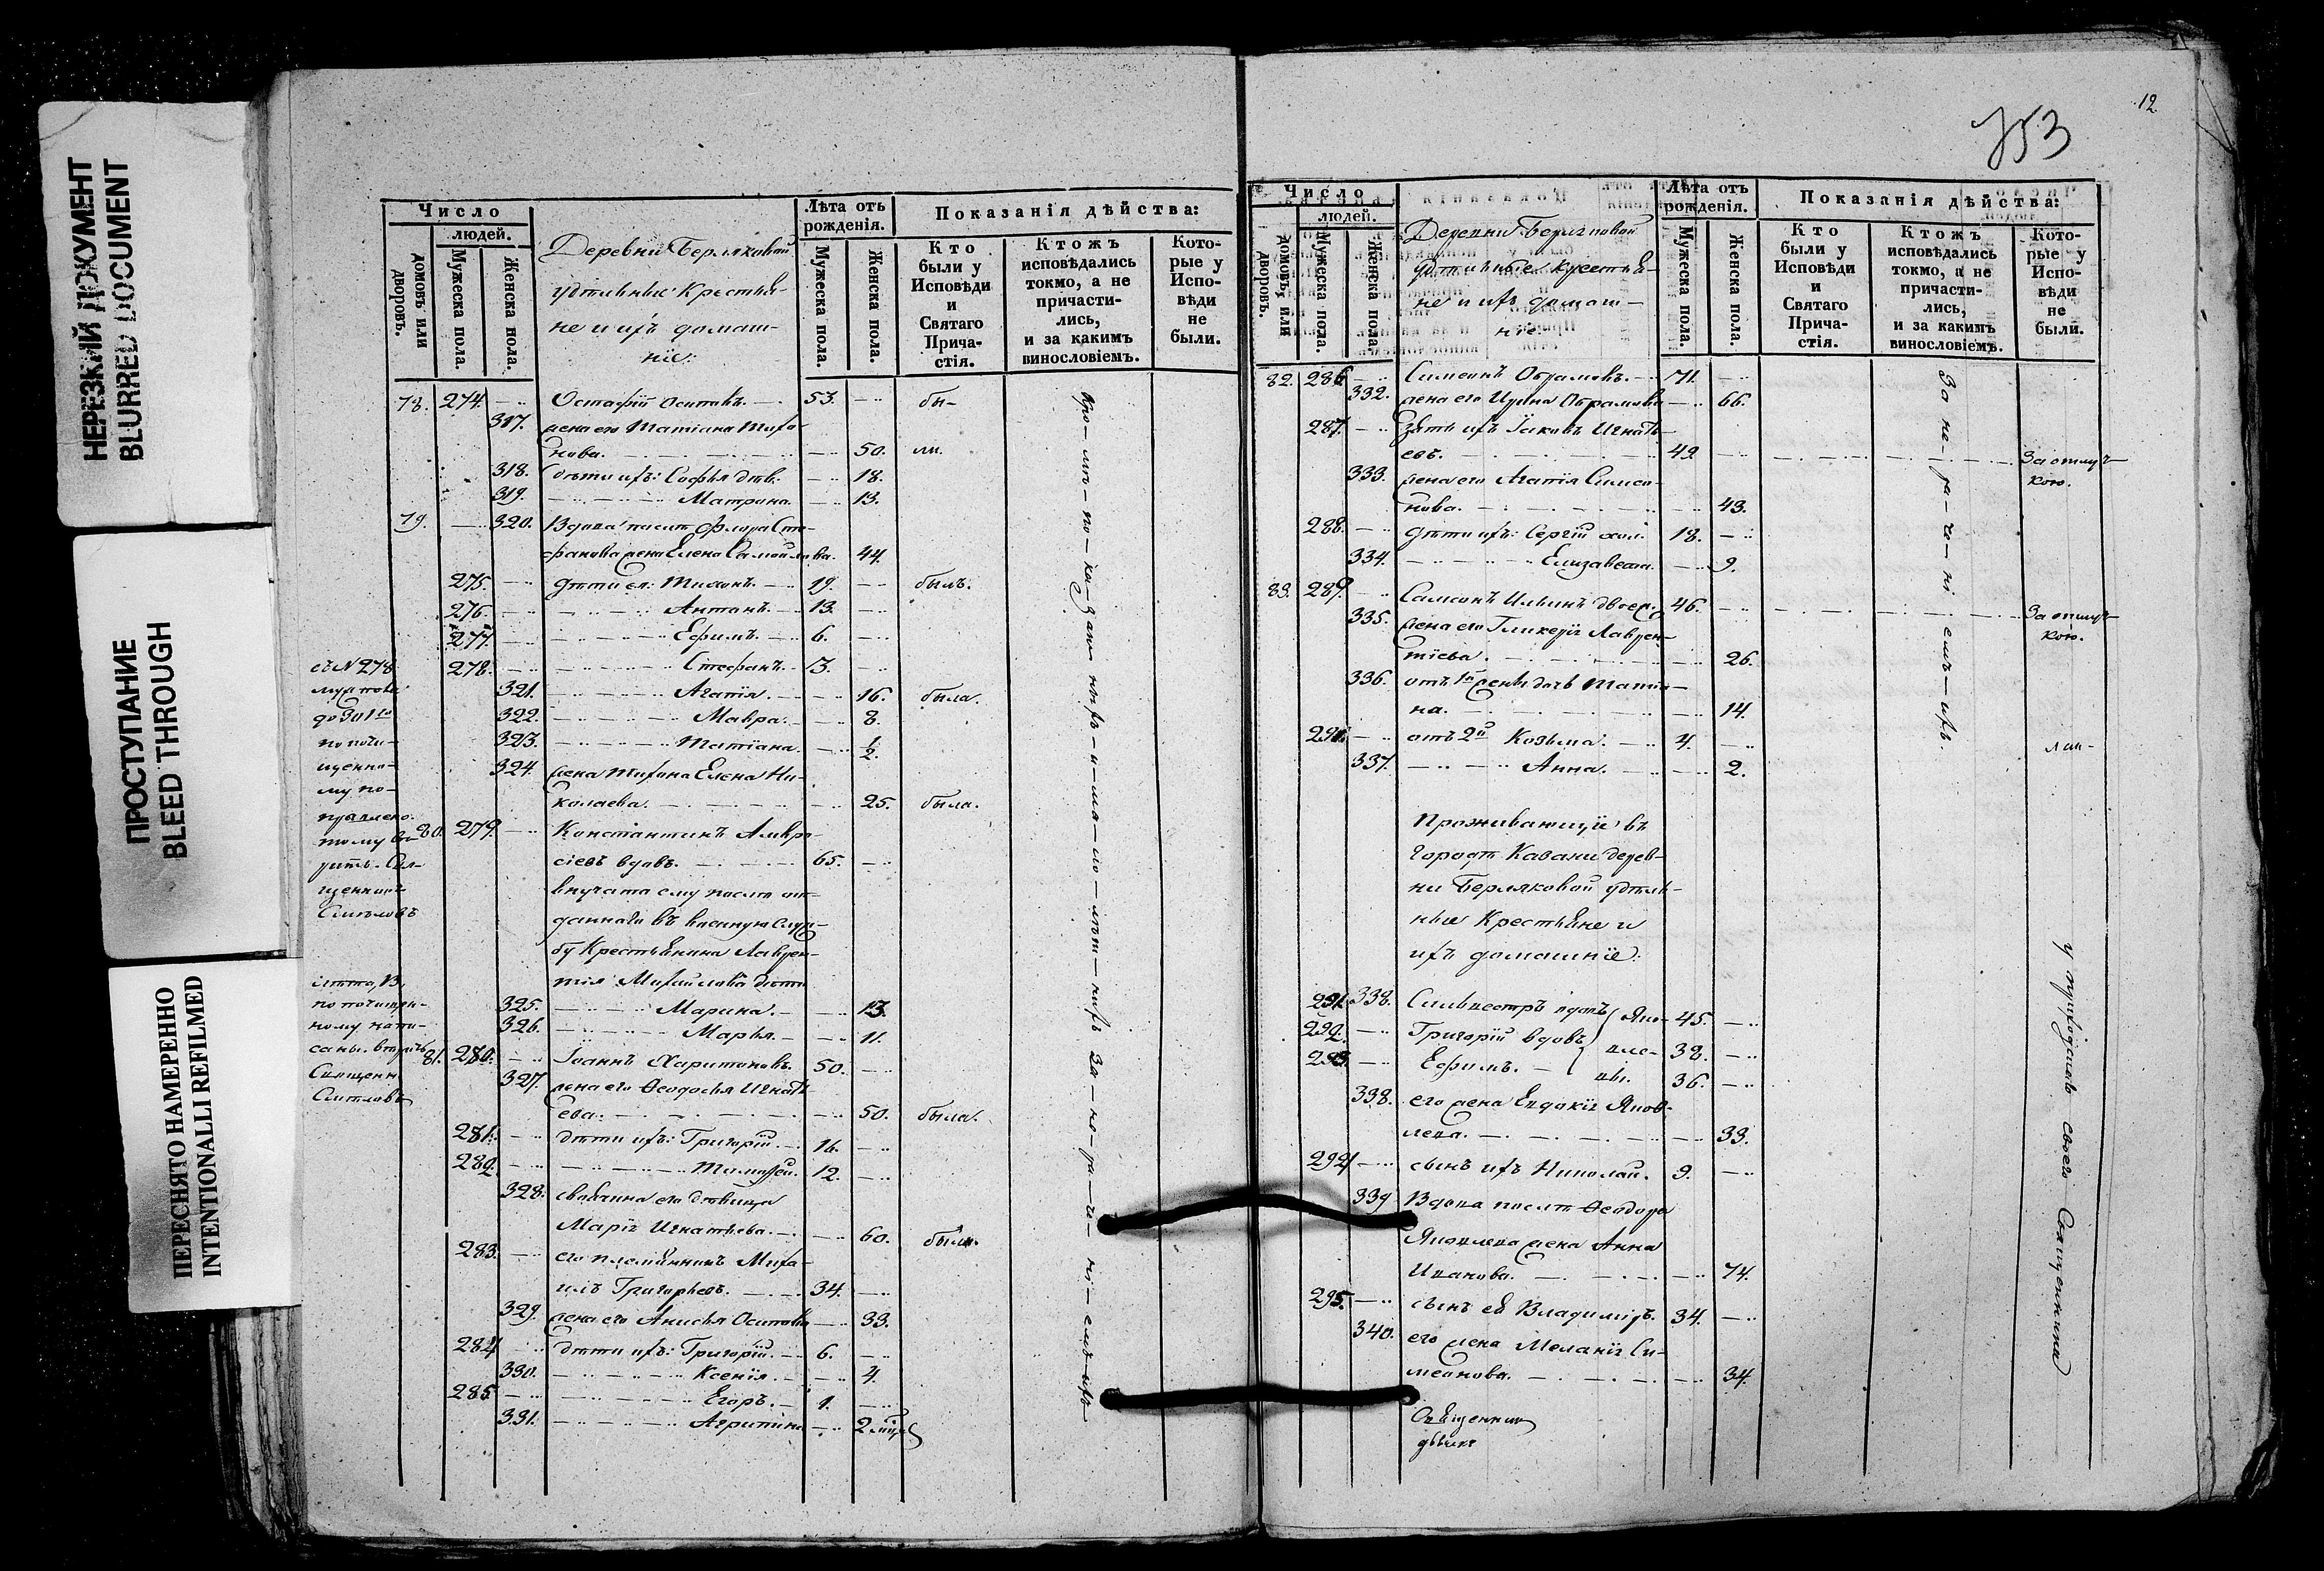 НЕРЕЗКИЙ ДОКУМЕНТ
BLURRED DOCUMENT
ПРОСТУПАНИЕ
BLEED THROUGH
ПЕРЕСНЯТО НАМЕРЕННО
INTENTIONALLI REFILMED
Число
людей.
домовъ или дворовъ.
Мужеска пола.
Женска пола.
Деревни Берляковой
удѣльные Крестья-
не и ихъ домаш-
ніе:
Лѣта отъ рожденія.
Мужеска пола.
Женска пола.
Показанія дѣйства:
Кто были у Исповѣди и Святаго Прича-стія.
Ктожъ исповѣдались токмо, а не причасти-лись, и за какимъ винословіемъ.
Кото-рые у Испо-вѣди не были.
78. 274. Остафій Осиповъ. 53. бы-
317. жена его Татіана Тихо
нова. 50. ли.
318. дѣти ихъ: Софья дѣв. 18.
319. Матрона. 13.
79. 320. Вдова послѣ Флора Сте-
фанова жена Елена Самойлова. 44.
275. дѣти ея: Тихонъ. 19. былъ.
276. Антонъ. 13.
277. Ефимъ. 6.
278. Стефанъ. 3.
321. Агапія. 16. была.
322. Мавра. 8.
323. Татіана. 1/2.
324. жена Тихона Елена Ни-
колаева. 25. была.
80. 279. Константинъ Амвро-
сіевъ вдовъ. 65.
внучата ему послѣ от-
даннаго въ военную служ-
бу Крестьянина Лаврен-
тія Михайлова дѣти
325. Марина. 13.
326. Марья. 11.
81. 280. Іоаннъ Харитоновъ. 50.
327. жена его Ѳеодосья Игнать
ева. 50. была.
281. дѣти ихъ: Григорій. 16.
282. Тимоѳей. 12.
328. своячина его дѣвица
Марія Игнатьева. 60. были.
283. его племянникъ Миха-
илъ Григорьевъ. 34.
329. жена его Анисья Осипова 33.
284. дѣти ихъ: Григорій. 6.
330. Ксенія. 4.
285. Егоръ. 1.
331. Агрипина 2 мѣс.
Кро-мѣ-по-ка-зан-ныхъ-и-ма-ло-лѣт-нихъ За-не-ра-че-ні-емъ-ихъ
съ N 278
до 301го
по почи-
щенно-
му по-
правлено.
Свя-
щенникъ
по почищен-
ному напи-
саны. вѣритъ
Священн
12
753
Число
людей.
домовъ, или дворовъ.
Мужеска пола.
Женска пола.
Деревни Берляковой
удѣльные крестья-
не и ихъ домаш-
ніе
Лѣта отъ рожденія.
Мужеска пола.
Женска пола.
Показанія дѣйства:
Кто были у Исповѣди и Святаго Прича-стія.
Ктожъ исповѣдались токмо, а не причасти-лись, и за какимъ винословіемъ.
Кото-рые у Испо-вѣди не были.
82. 286. Симеонъ Обрамовъ. 71.
332. жена его Ирина Абрамова 66.
287. Зять ихъ Іаковъ Игнать-
евъ. 49. За отлуч-
кою.
333. жена его Агапія Симео-
нова. 43.
288. дѣти ихъ: Сергій хол. 18.
334. Елизавета. 9.
83. 289. Самсонъ Ильинъ двоеж. 46. За отлуч-
кою.
335. жена его Гликерія Лаврен-
тіева. 26.
336. отъ 1й жены дочь Татіа-
на. 14.
290. отъ 2й Козьма. 4.
337. Анна. 2.
За-не-ра-че-ні-емъ-ихъ.
Проживающіе въ
городѣ Казани дерев-
ни Берляковой удѣль-
ные Крестьяне и
ихъ домашніе:
291. 338. Сильвестръ вдовъ Яко- 45.
292. Григорій вдовъ вле- 38.
293. Ефимъ. вы. 36.
338. его жена Евдокія Яков-
лева. 33.
294 сынъ ихъ Николай. 9.
339 Вдова послѣ Ѳеодора
Яковлева жена Анна
Иванова. 74.
295. сынъ ея Владиміръ. 34.
340. его жена Меланія Си-
меонова. 34.
своего Священника
Священникъ